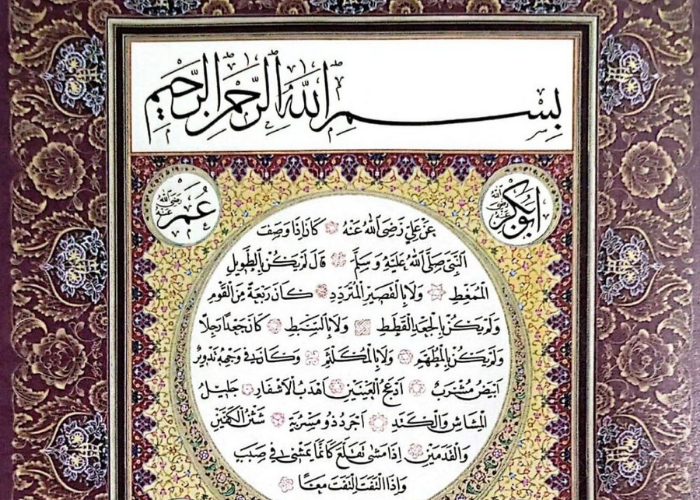 بِسْمِ اللهِ الرَّحْمٰنِ الرَّحِيمِ
ابُوبَكْرٍ رضي الله عنه
عُمَرُ رضي الله عنه
عَنْ عَلِيٍّ رَضِيَ اللهُ عَنْهُ كَانَ إِذَا وَصَفَ
النَّبِيَّ صَلَّى اللهُ عَلَيْهِ وَسَلَّمَ قَالَ لَمْ يَكُنْ بِالطَّوِيلِ
الْمُمَغَّطِ وَلَا بِالْقَصِيرِ الْمُتَرَدِّدِ كَانَ رَبْعَةً مِنَ الْقَوْمِ
وَلَمْ يَكُنْ بِالْجَعْدِ الْقَطَطِ وَلَا بِالسَّبِطِ كَانَ جَعْدًا رَجِلًا
وَلَمْ يَكُنْ بِالْمُطَهَّمِ وَلَا بِالْمُكَلْثَمِ وَكَانَ فِي وَجْهِهِ تَدْوِيرٌ
اَبْيَضُ مُشْرَبٌ اَدْعَجُ الْعَيْنَيْنِ اَهْدَبُ الْاَشْفَارِ جَلِيلُ
الْمُشَاشِ وَالْكَتَدِ اَجْرَدُ ذُو مَسْرُبَةٍ شَثْنُ الْكَفَّيْنِ
وَالْقَدَمَيْنِ اِذَا مَشَى تَقَلَّعَ كَاَنَّمَا يَمْشِي فِي صَبَبٍ
وَاِذَا الْتَفَتَ الْتَفَتَ مَعًا